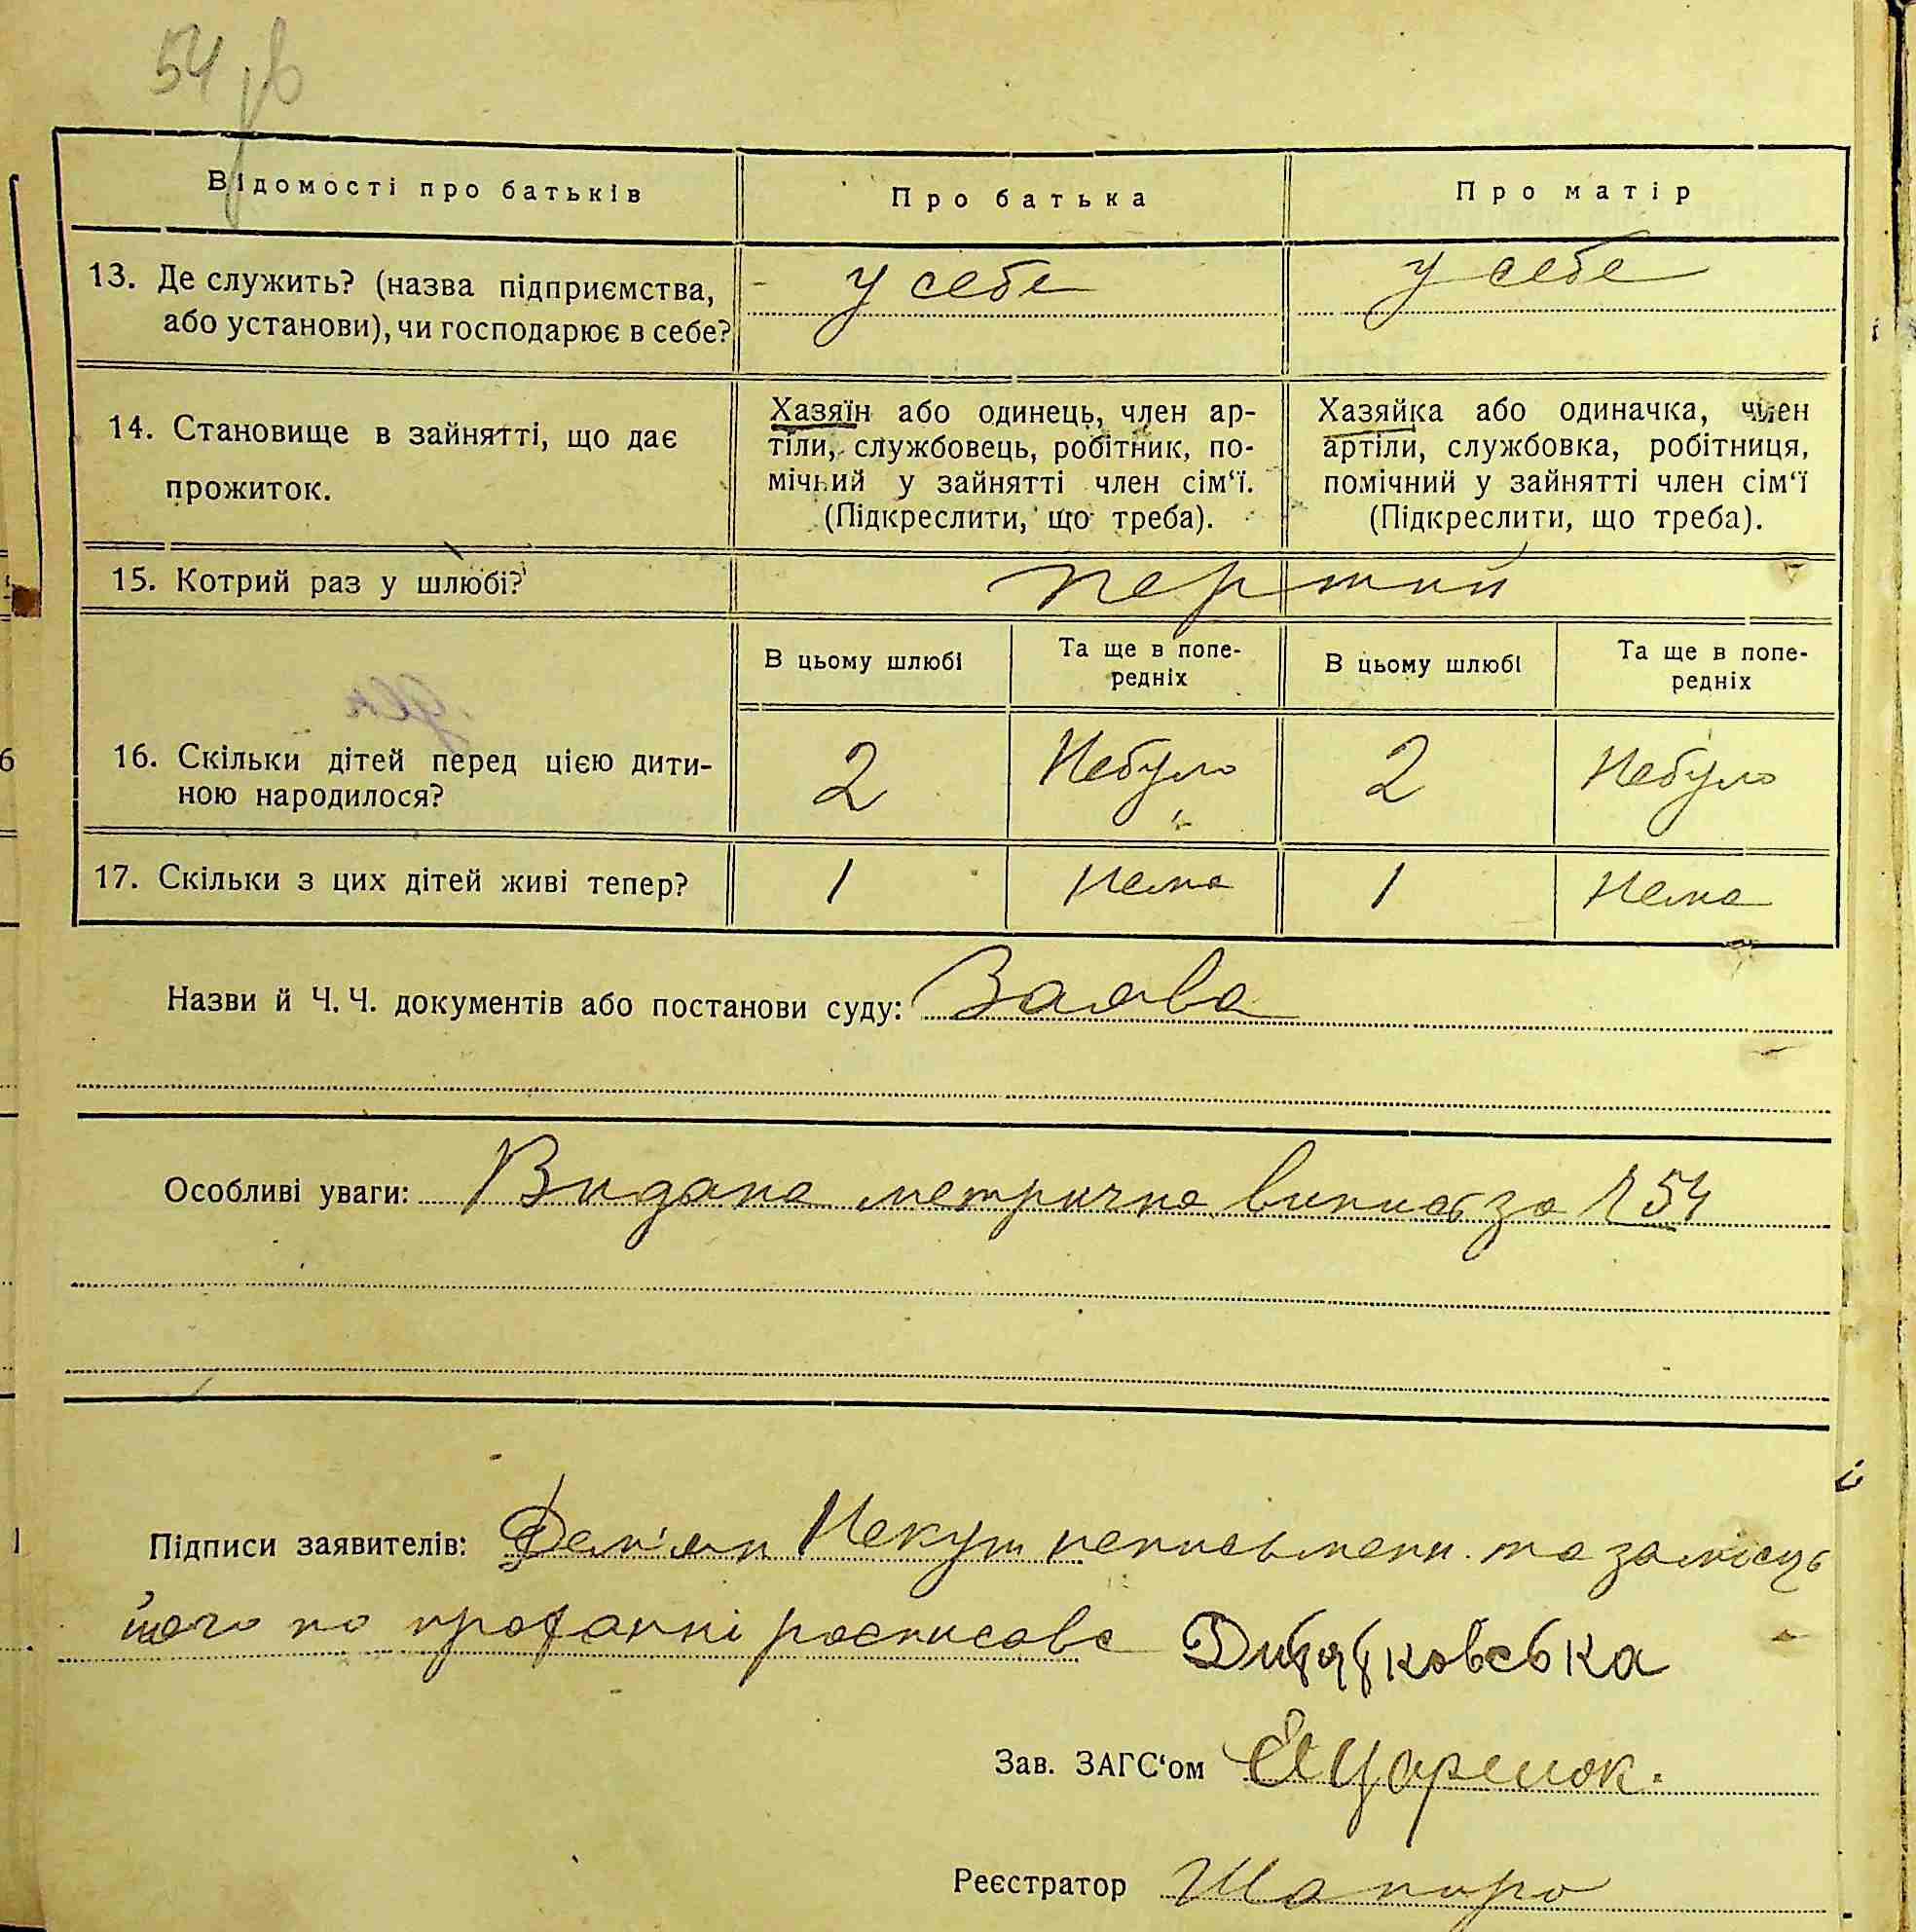 54
Відомості про батьків
Про батька
Про матір
13. Де служить? (назва підприємства,
або установи), чи господарює в себе?
у себе
у себе
14. Становище в зайнятті, що дає
прожиток.
Хазяїн або одинець, член ар-
тіли, службовець, робітник, по-
мічний у зайнятті член сім‘ї.
(Підкреслити, що треба).
Хазяйка або одиначка, член
артіли, службовка, робітниця,
помічний у зайнятті член сім‘ї
(Підкреслити, що треба).
15. Котрий раз у шлюбі?
перший
В цьому шлюбі
Та ще в попе-
редніх
В цьому шлюбі
Та ще в попе-
редніх
16. Скільки дітей перед цією дити-
ною народилося?
2
Небуло
2
Небуло
17. Скільки з цих дітей живі тепер?
1
Нема
1
Нема
Назви й Ч. Ч. документів або постанови суду: Заява
Особливі уваги: Видана метрична випись за № 54
Підписи заявителів: Дем'ян Некут неписьменн. та замісць
його по проханні росписавс
Зав. ЗАГС‘ом
Реєстратор Шапиро